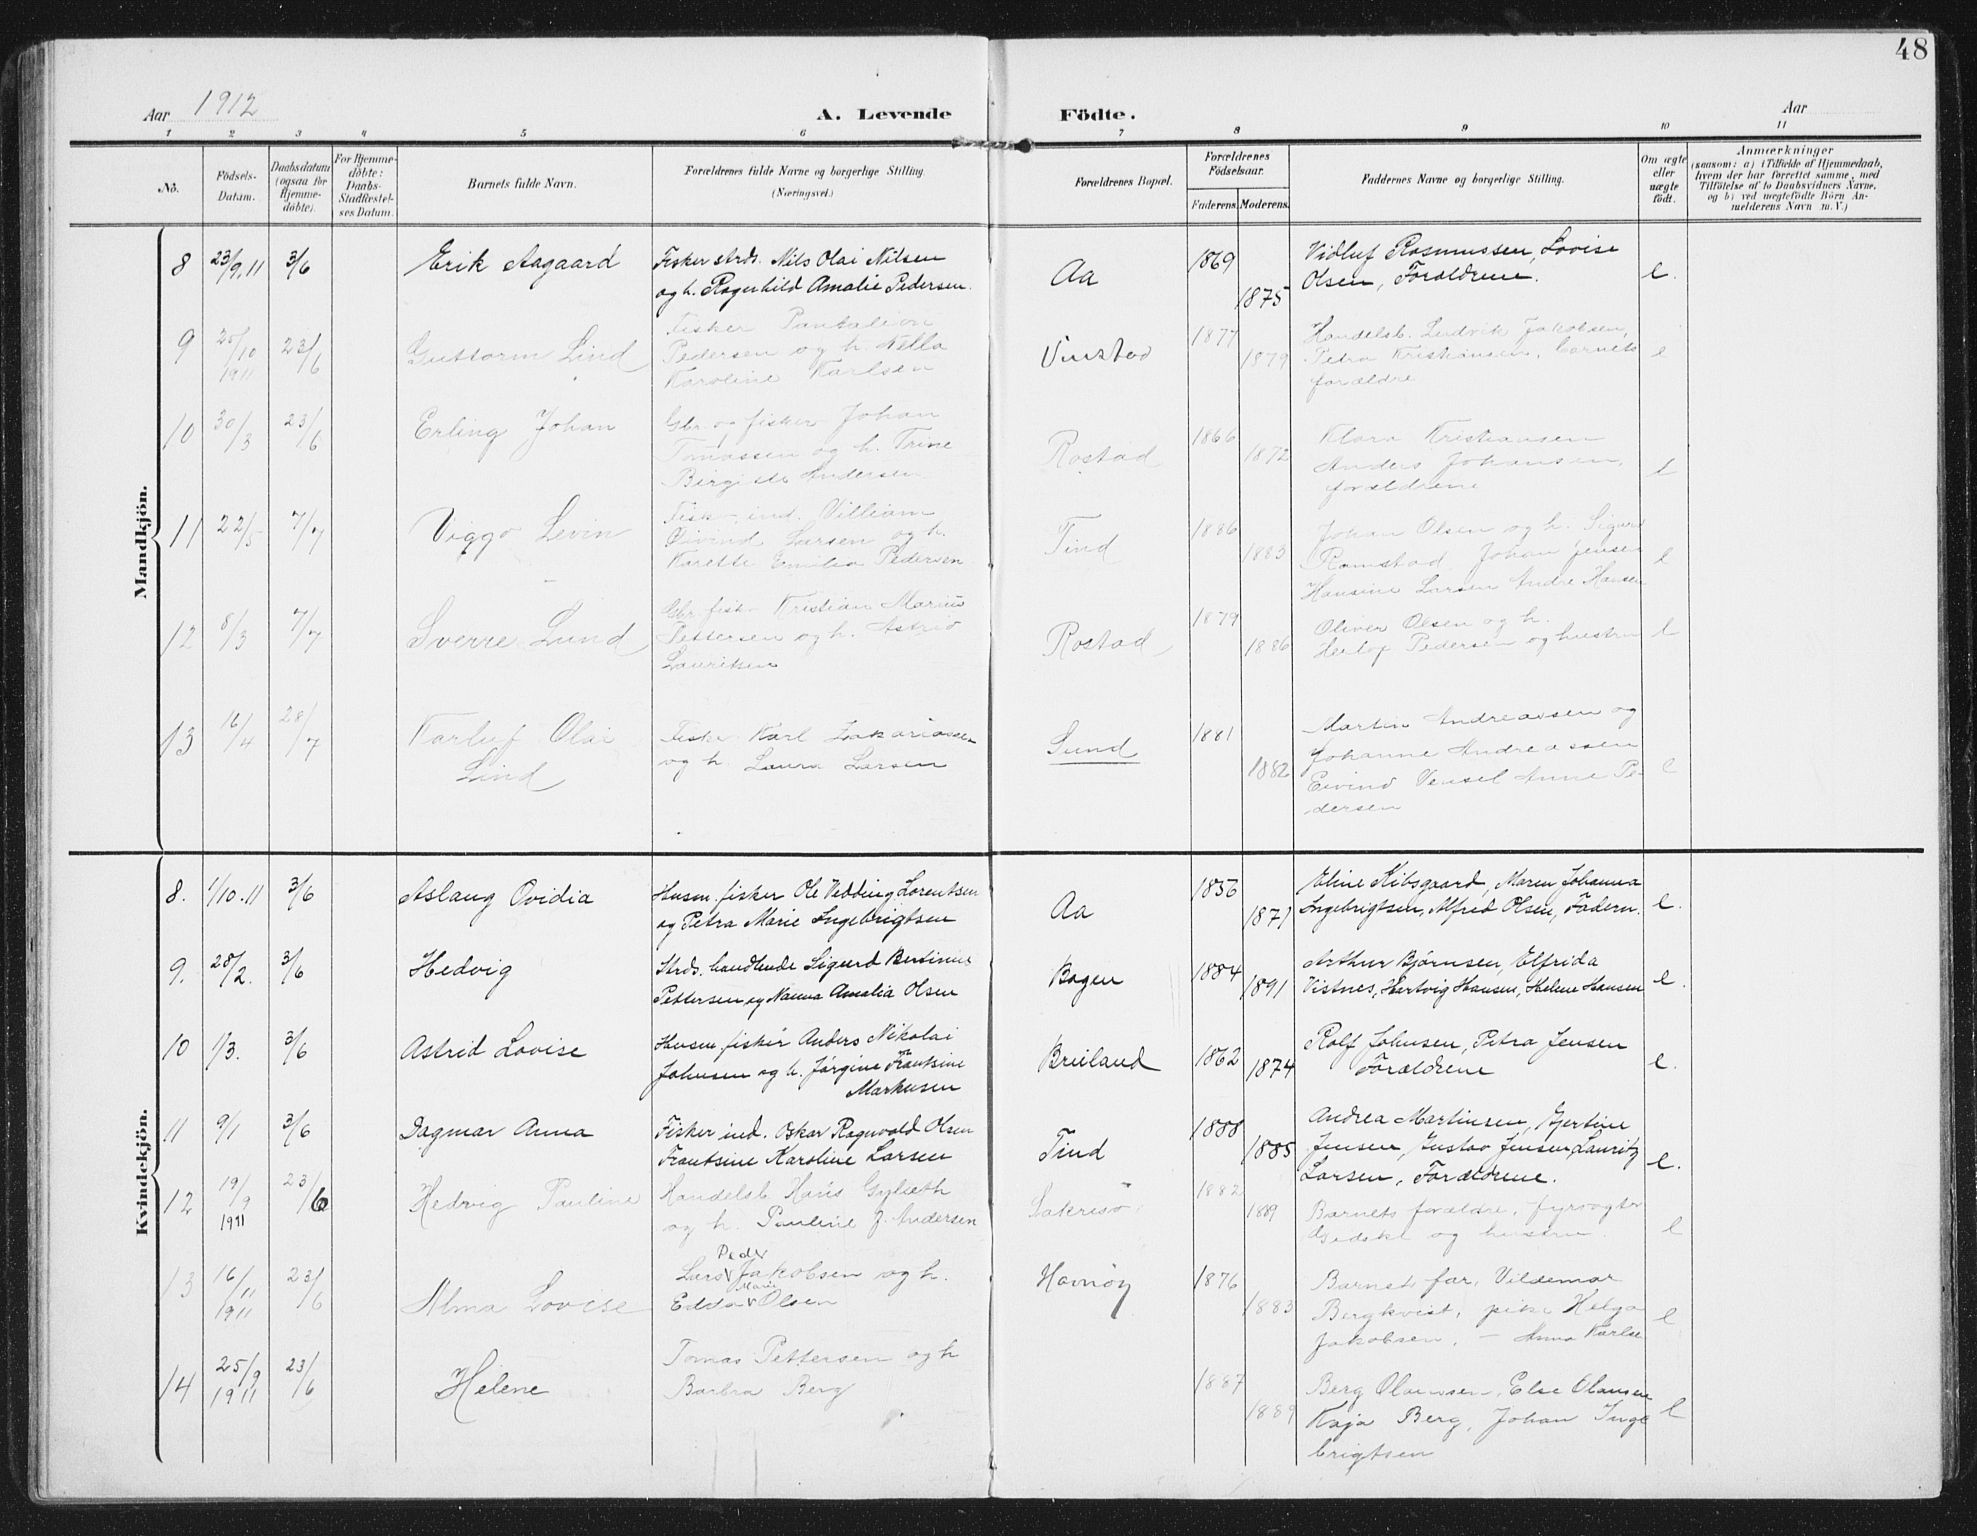 48
Aar 1912
A. Levende Födte.
Aar
1 2 3 4 5 6 7 8 9 10 11
No.
Födsels-Datum.
Daabsdatum (ogsaa for Hjemme-döbte).
For Hjemme-döbte: Daabs-Stadfæstel-ses Datum.
Barnets fulde Navn.
Forældrenes fulde Navne og borgerlige Stilling. (Næringsvei.)
Forældrenes Bopæl.
Forældrenes Födselsaar.
Faderens. Moderens.
Faddernes Navne og borgerlige Stilling.
Om ægte eller uægte födt.
Anmærkninger
(saasom: a) i Tilfælde af Hjemmedaab,
hvem der har forrettet samme, med
Tilföielse af to Daabsvidners Navne,
og b) ved uægtefödte Börn An-
melderens Navn m. V.)
Mandkjön.
8 23/9.11 3/6 Erik Aagaard
Fisker strds. Nils Olai Nilsen
og h. Ragnhild Amalie Pedersen.
Aa 1869 1875
Vidluf Rasmussen, Lovise
Olsen, Forældrene. e.
9 25/10 1911 23/6 Guttorm Lind
Fisker Pantaleon
Pedersen og h. Nella
Karoline Karlsen
Vinstad 1877 1879
Handelsb. Ludvik Jakobsen,
Petra Kristiansen, barnets
forældre e
10 30/3 23/6 Erling Johan
Gbr. og fisker Johan
Tomassen og h. Trine
Birgitte Andersen
Rostad 1866 1872
Klara Kristiansen
Anders Johansen,
forældrene e
11 22/5 7/7 Viggo Levin
Fisk. ind. Villiam
Øivind Larsen og h.
Karette Emilia Pedersen
Tind 1886 1883
Johan Olsen og h. Sigurd
Ramstad Johan Jensen
Hansine Larsen Andre Hansen e
12 8/3 7/7 Sverre Lund
Gbr. fisk. Kristian Marius
Pettersen og h. Astrid
Lauritsen
Rostad 1879 1886
Oliver Olsen og h.
Pedersen og hustru e
13 16/4 28/7 Karluf Olai
Lind
Fisker Karl Zakariassen
og h. Laura Larsen
Sund 1881 1882
Martin Andreassen og
Johanne Andreassen
Eivind Vensel Anne Pe-
dersen e
Kvindekjön.
8. 1/10.11 3/6 Aslaug Ovidia
Husm. fisker Ole Vedding Lorentsen
og Petra Marie Ingebrigtsen
Aa 1856 1871
Eline Kibsgaard, Maren Johanna
Ingebrigtsen, Alfred Olsen, Fadern. e.
9. 28/2. 3/6 Hedvig
Strds. handlende Sigurd Bertinius
Pettersen og Nanna Amalia Olsen
Bogen 1884 1891
Arthur Bjørnsen, Elfrida
Vistnes, Hartvig Hansen, Helene Hansen e.
10 1/3. 3/6 Astrid Lovise
Husm. fisker Anders Nikolai
Johnsen og h. Jørgine Frantsine
Markusen
Breiland 1862 1874
Rolf Johnsen, Petra Jensen
Forældrene e.
11 9/1 3/6 Dagmar Anna
Fisker ind. Oskar Ragnvald Olsen
Frantsine Karoline Larsen
Tind 1888 1885
Andrea Martinsen, Hjertine
Jensen, Gustav Jensen, Lauritz
Larsen, Forældrene. e.
12 19/9 1911 23/6 Hedvig Pauline
Handelsb. Hans Gylseth
og h. Pauline J. Andersen
Sakrisø 1882 1889
Barnets forældre, fyrvogter
Gidske og hustru e
13 16/11 1911 23/6 Alma Lovise
Lars Peder Jakobsen og h.
Edda Marie Olsen
Havnøy 1876 1883
Barnets far, Vildemar
Bergkvist, pike Helga
Jakobsen, — Anna Karlse e
14 25/9 1911 23/6 Helene
Tomas Pettersen og h
Barbra Berg
1887 1889
Berg Olaussen, Else Olausen
Kaja Berg, Johan Inge
brigtsen e